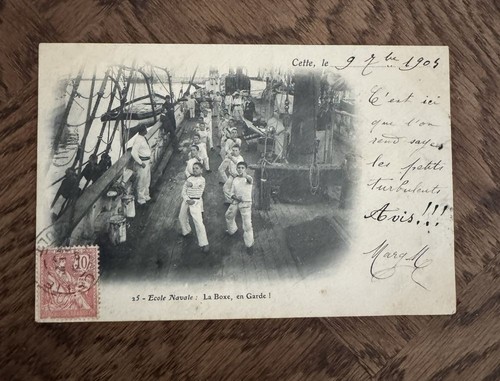 Cette, le 9 7bre 1903
C'est ici
que l'on
rend sages
les petits
turbulents
Avis!!!
Marg M.
10
25 - Ecole Navale : La Boxe, en Garde !